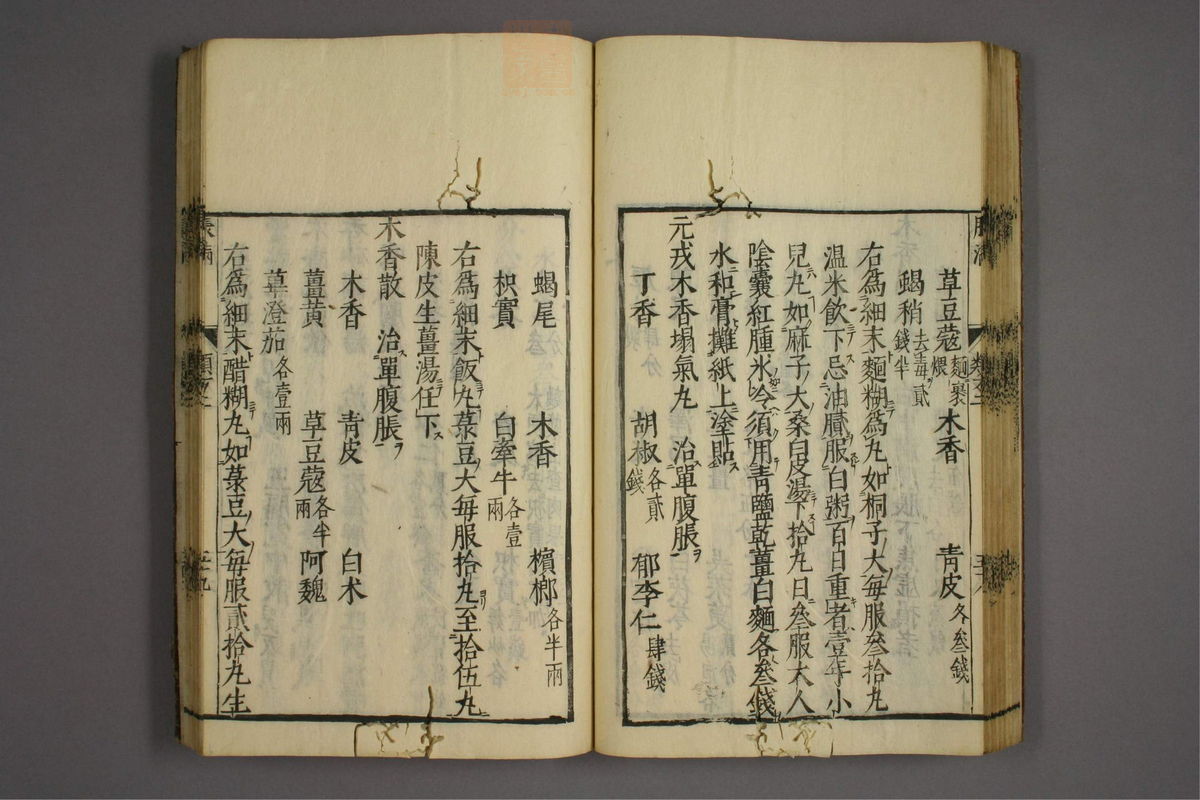 草豆蔻麵裹煨 木香 靑皮各叁錢
蝎稍去毒貳錢半
右爲細末麵糊爲丸如桐子大每服叁拾丸
温米飮下忌油膩服白粥百日重者壹年小
兒丸如麻子大桑白皮湯下拾丸日叁服大人
陰囊紅腫氷冷須用靑鹽乾薑白麵各叁錢
水和膏攤紙上塗貼
元戎木香塌氣丸 治單腹脹
丁香 胡椒各貳錢 郁李仁肆錢
蝎尾 木香 檳榔各半兩
枳實 白牽牛各壹兩
右爲細末飯丸菉豆大每服拾丸至拾伍丸
陳皮生薑湯任下
木香散 治單腹脹
木香 靑皮 白朮
薑黃 草豆蔻各半兩 阿魏
蓽澄茄各壹兩
右爲細末醋糊丸如菉豆大每服貳拾丸生